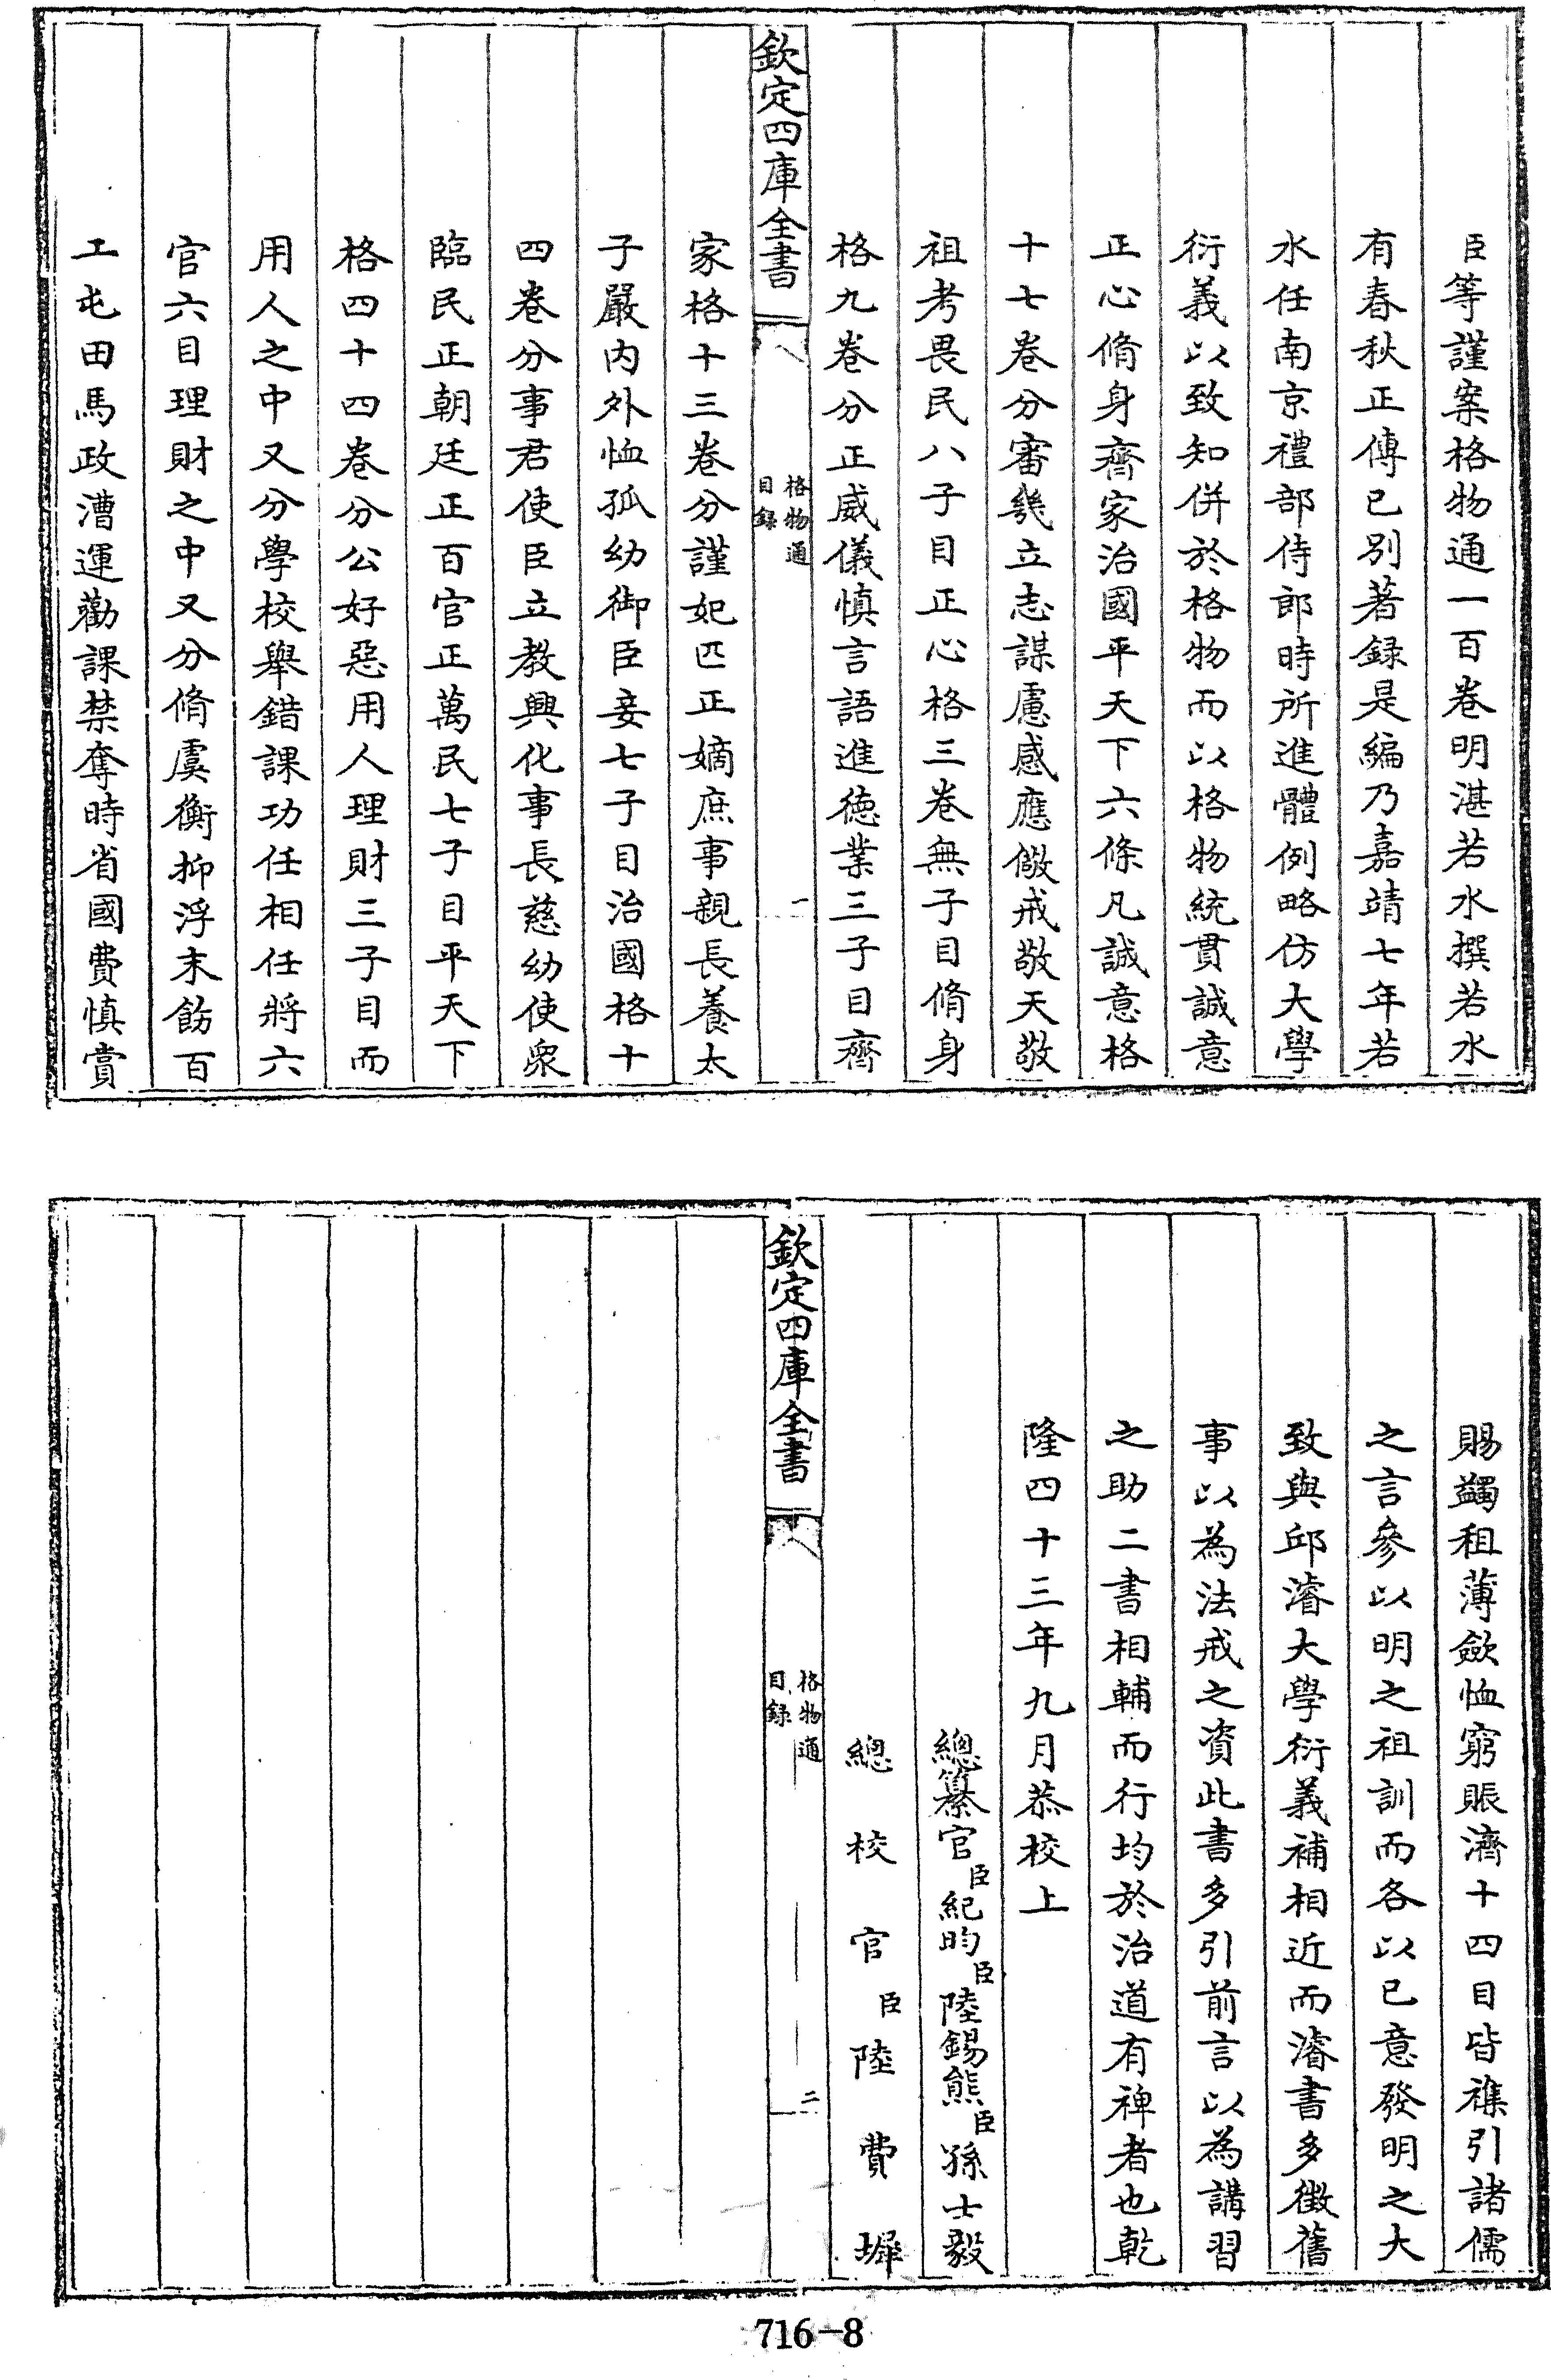 臣等謹案格物通一百卷明湛若水撰若水
有春秋正傳已別著録是編乃嘉靖七年若
水任南京禮部侍郎時所進體例略仿大學
衍義以致知併於格物而以格物統貫誠意
正心脩身齊家治國平天下六條凡誠意格
十七卷分審幾立志謀慮感應儆戒敬天敬
祖考畏民八子目正心格三卷無子目脩身
格九卷分正威儀慎言語進德業三子目齊
欽定四庫全書
格物通
目録
一
家格十三卷分謹妃匹正嫡庶事親長養太
子嚴内外恤孤幼御臣妾七子目治國格十
四卷分事君使臣立教興化事長慈幼使衆
臨民正朝廷正百官正萬民七子目平天下
格四十四卷分公好惡用人理財三子目而
用人之中又分學校舉錯課功任相任將六
官六目理財之中又分脩虞衡抑浮末飭百
工屯田馬政漕運勸課禁奪時省國費慎賞
賜蠲租薄斂恤窮賑濟十四目皆襍引諸儒
之言參以明之祖訓而各以已意發明之大
致與邱濬大學衍義補相近而濬書多徴舊
事以為法戒之資此書多引前言以為講習
之助二書相輔而行均於治道有裨者也乾
隆四十三年九月恭校上
總纂官臣紀昀臣陸錫熊臣孫士毅
總校官臣陸費墀
欽定四庫全書
格物通
目録
二
716-8